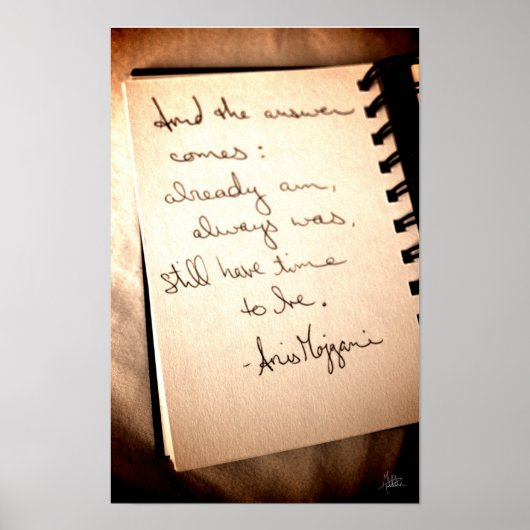 And the answer
comes:
already am,
always was,
still have time
to be.
-Anis Mojgani